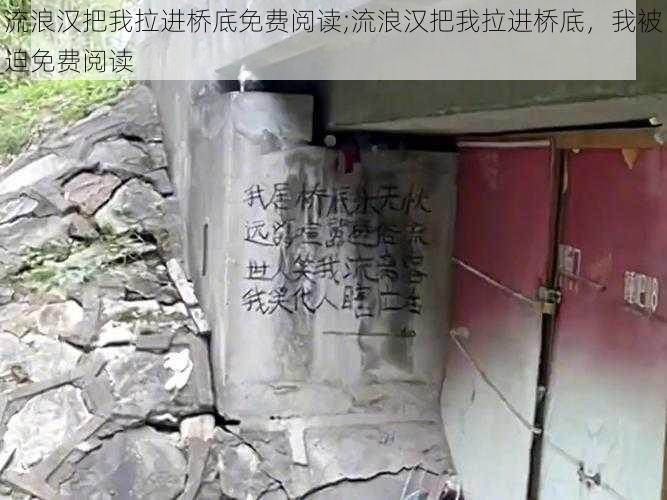 流浪汉把我拉进桥底免费阅读;流浪汉把我拉进桥底，我被
迫免费阅读
我居桥底永无忧
远离喧嚣避俗流
世人笑我流亡客
我笑代人瞎忙生